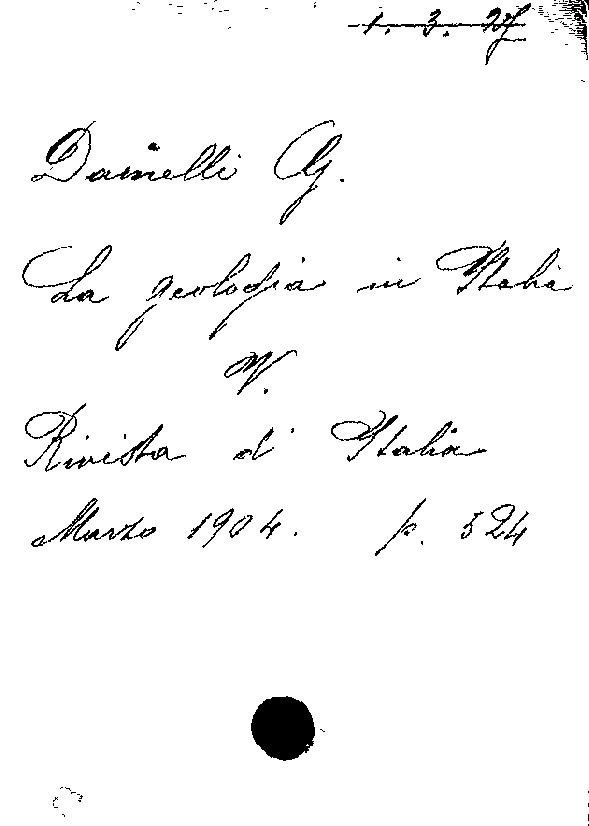 1. 3. 27
Dainelli G.
La geologia in Italia
V.
Rivista d' Italia
Marzo 1904. p. 524